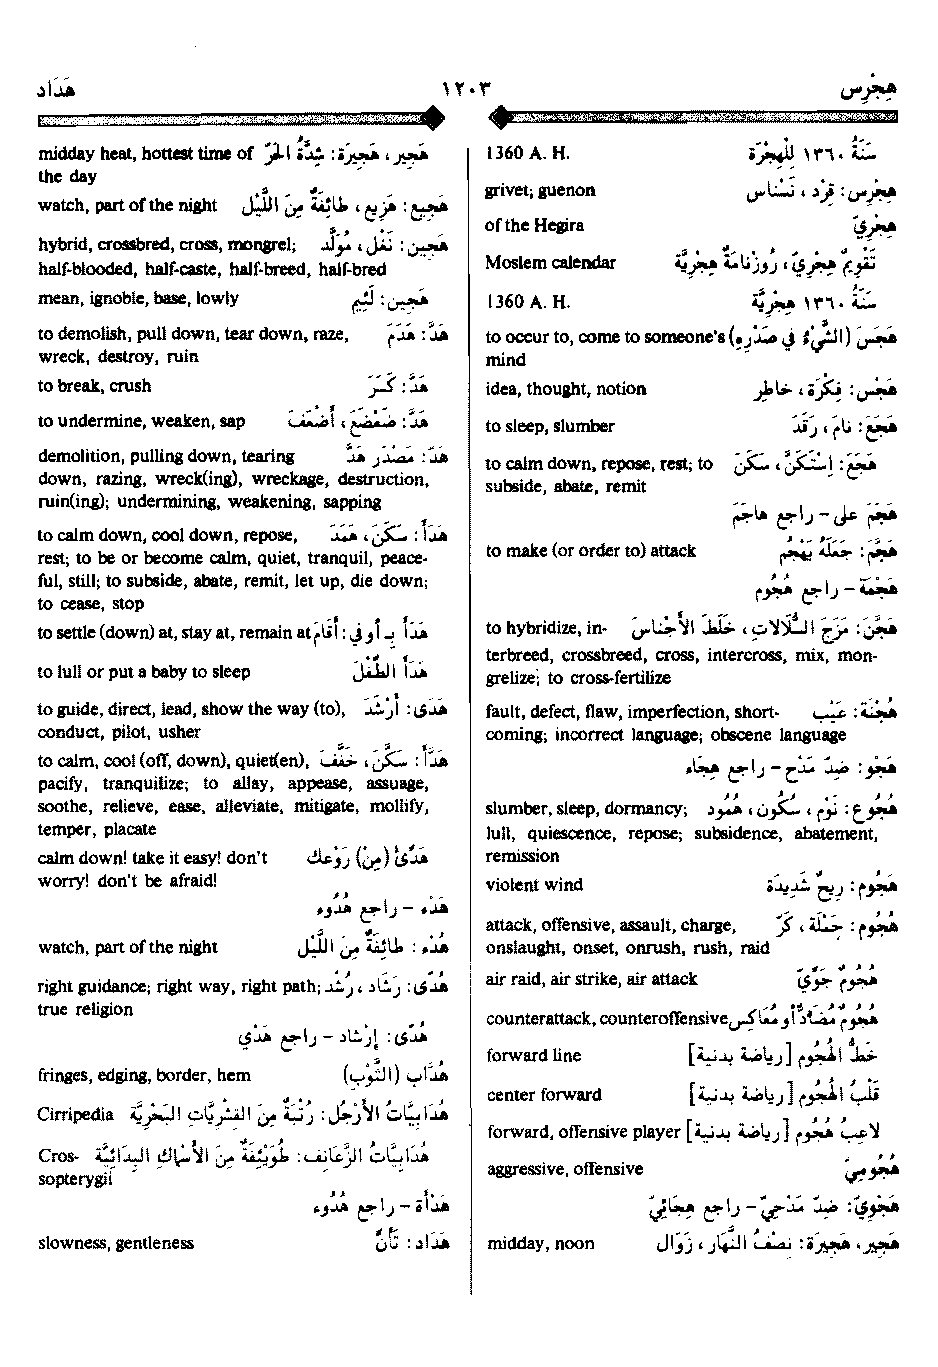 هِجْرِس ١٢٠٣ هَدَاد
سَنَةُ ١٣٦٠ لِلْهِجْرَة 1360 A. H.
هِجْرِس: قِرْد، نَسْنَاس grivet; guenon
هِجْرِيّ of the Hegira
تَقْوِيمٌ هِجْرِيّ، رُوزْنَامَةٌ هِجْرِيَّة Moslem calendar
سَنَةُ ١٣٦٠ هِجْرِيَّة 1360 A. H.
هَجَسَ (الشَّيْءُ في صَدْرِهِ) to occur to, come to someone's
mind
هَجْس: فِكْرَة، خاطِر idea, thought, notion
هَجَعَ: نامَ، رَقَدَ to sleep, slumber
هَجَعَ: اِسْتَكَنَّ، سَكَنَ to calm down, repose, rest; to
subside, abate, remit
هَجَمَ على - راجع هاجَمَ
هَجَّمَ: جَعَلَهُ يَهْجُم to make (or order to) attack
هَجْمَة - راجع هُجُوم
هَجَّنَ: مَزَجَ السُّلالاتِ، خَلَطَ الأَجْنَاسَ to hybridize, in-
terbreed, crossbreed, cross, intercross, mix, mon-
grelize; to cross-fertilize
هُجْنَة: عَيْب fault, defect, flaw, imperfection, short-
coming; incorrect language; obscene language
هَجْو: ضِدّ مَدْح - راجع هِجَاء
هُجُوع: نَوْم، سُكُون، هُمُود slumber, sleep, dormancy;
lull, quiescence, repose; subsidence, abatement,
remission
هَجُوم: رِيحٌ شَدِيدَة violent wind
هُجُوم: حَمْلَة، كَرّ attack, offensive, assault, charge,
onslaught, onset, onrush, rush, raid
هُجُومٌ جَوِّيّ air raid, air strike, air attack
هُجُومٌ مُضَادٌّ أو مُعَاكِس counterattack, counteroffensive
خَطُّ الهُجُوم [رياضة بدنية] forward line
قَلْبُ الهُجُوم [رياضة بدنية] center forward
لاعِبُ هُجُوم [رياضة بدنية] forward, offensive player
هُجُومِيّ aggressive, offensive
هَجْوِيّ: ضِدّ مَدْحِيّ - راجع هِجَائِيّ
هَجِير، هَجِيرَة: نِصْفُ النَّهَار، زَوَال midday, noon
هَجِير، هَجِيرَة: شِدَّةُ الحَرّ midday heat, hottest time of
the day
هَجِيع: هَزِيع، طَائِفَةٌ مِنَ اللَّيْل watch, part of the night
هَجِين: نَغْل، مُوَلَّد hybrid, crossbred, cross, mongrel;
half-blooded, half-caste, half-breed, half-bred
هَجِين: لَئِيم mean, ignoble, base, lowly
هَدَّ: هَدَمَ to demolish, pull down, tear down, raze,
wreck, destroy, ruin
هَدَّ: كَسَرَ to break, crush
هَدَّ: ضَعْضَعَ، أَضْعَفَ to undermine, weaken, sap
هَدّ: مَصْدَر هَدَّ demolition, pulling down, tearing
down, razing, wreck(ing), wreckage, destruction,
ruin(ing); undermining, weakening, sapping
هَدَأَ: سَكَنَ، هَمَدَ to calm down, cool down, repose,
rest; to be or become calm, quiet, tranquil, peace-
ful, still; to subside, abate, remit, let up, die down;
to cease, stop
هَدَأَ بِـ أو في: أَقَامَ to settle (down) at, stay at, remain at
هَدَأَ الطِّفْلَ to lull or put a baby to sleep
هَدَى: أَرْشَدَ to guide, direct, lead, show the way (to),
conduct, pilot, usher
هَدَّأَ: سَكَّنَ، خَفَّفَ to calm, cool (off, down), quiet(en),
pacify, tranquilize; to allay, appease, assuage,
soothe, relieve, ease, alleviate, mitigate, mollify,
temper, placate
هَدِّئْ (مِنْ) رَوْعِكَ calm down! take it easy! don't
worry! don't be afraid!
هَدْء - راجع هُدُوء
هُدْء: طَائِفَةٌ مِنَ اللَّيْل watch, part of the night
هُدًى: رَشَاد، رُشْد right guidance; right way, right path;
true religion
هُدًى: إِرْشَاد - راجع هَدْي
هُدَّاب (الثَّوْبِ) fringes, edging, border, hem
هُدَابِيَّاتُ الأَرْجُل: رُتْبَةٌ مِنَ القِشْرِيَّاتِ البَحْرِيَّة Cirripedia
هُدَابِيَّاتُ الزَّعَانِف: طُوَيْئِفَةٌ مِنَ الأَسْمَاكِ البِدَائِيَّة Cros-
sopterygii
هَدْأَة - راجع هُدُوء
هَدَاد: تَأَنٍّ slowness, gentleness